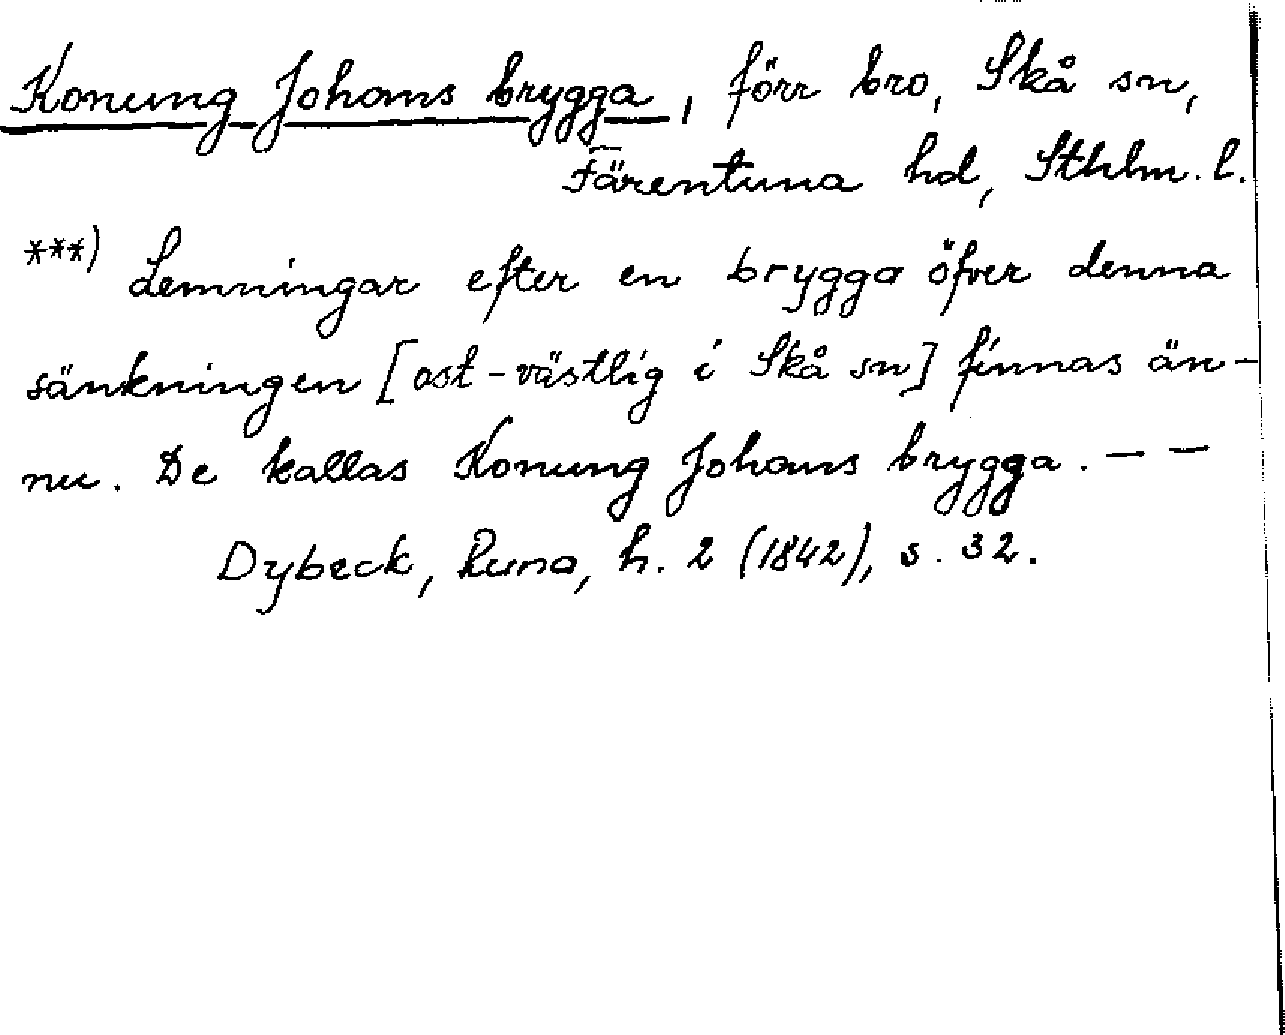 Konung Johans brygga, förr bro, Skå sn,
Färentuna hd, Sthlm. l.
***) Lemningar efter en brygga öfver denna
sänkningen [ost-västlig i Skå sn] finnas än-
nu. De kallas Konung Johans brygga. — —
Dybeck, Runa, h. 2 (1842), s. 32.